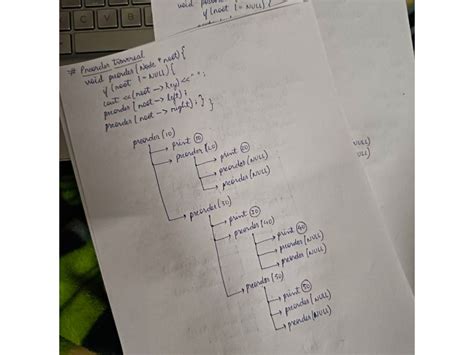 void preord
if (root != NULL)
# Preorder Traversal
void preorder (Node * root) {
if (root != NULL) {
cout << (root -> key) << " ";
preorder (root -> left);
preorder (root -> right); } }
preorder (10)
print 10
preorder (20)
print 20
preorder (NULL)
preorder (NULL)
preorder (30)
print 30
preorder (40)
print 40
preorder (NULL)
preorder (NULL)
preorder (50)
print 50
preorder (NULL)
preorder (NULL)
NULL)
NULL)